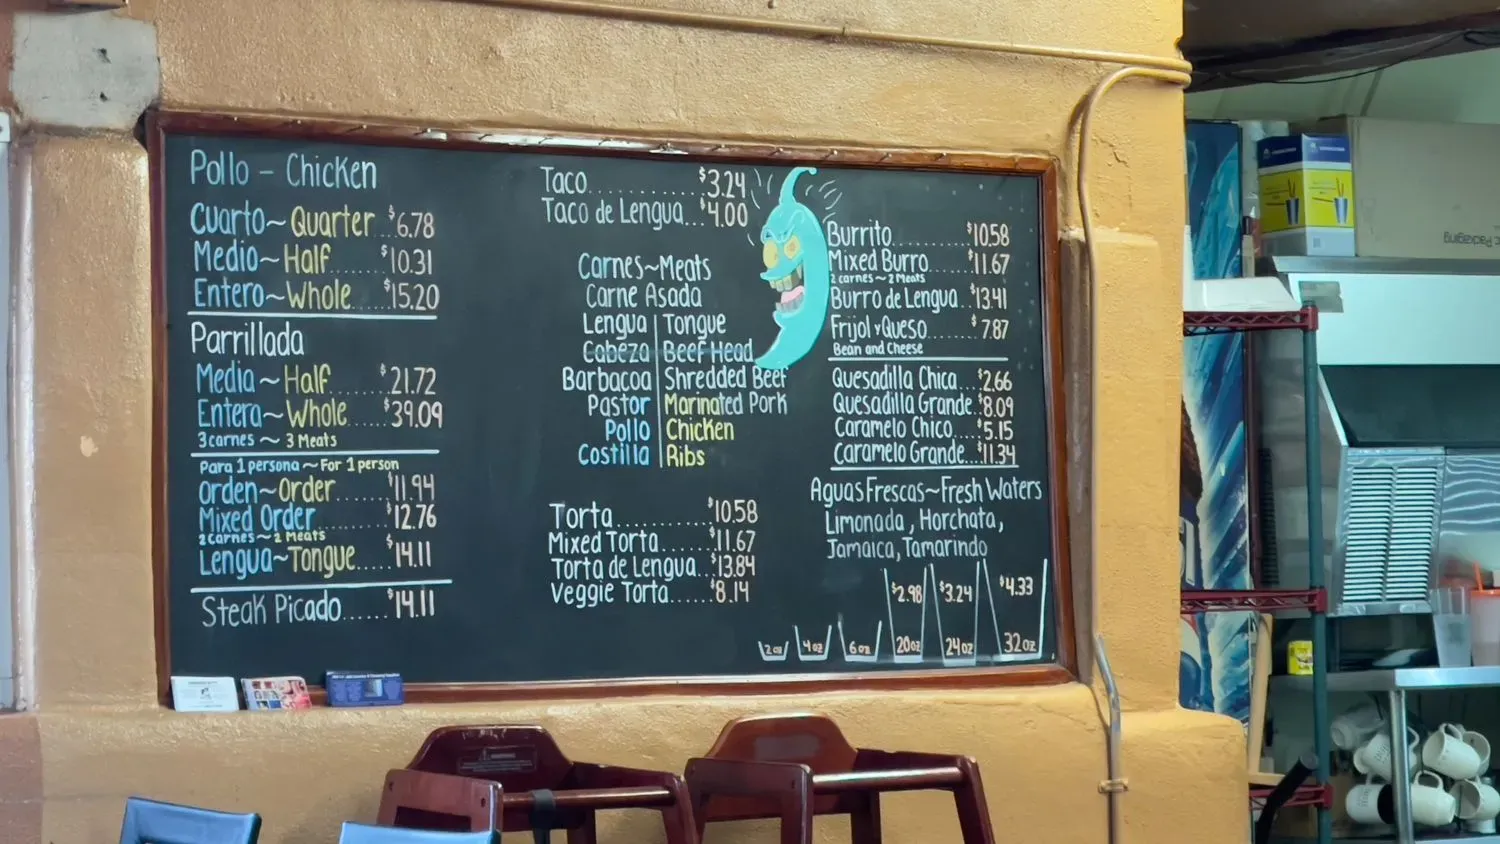 Pollo - Chicken
Cuarto~Quarter...$6.78
Medio~Half.......$10.31
Entero~Whole....$15.20
Parrillada
Media~Half.......$21.72
Entera~Whole....$39.09
3 carnes ~ 3 Meats
Para 1 persona ~ For 1 person
Orden~Order.......$11.94
Mixed Order.........$12.76
2 carnes ~ 2 Meats
Lengua~Tongue....$14.11
Steak Picado......$14.11
Taco..............$3.24
Taco de Lengua...$4.00
Carnes~Meats
Carne Asada
Lengua | Tongue
Cabeza | Beef Head
Barbacoa | Shredded Beef
Pastor | Marinated Pork
Pollo | Chicken
Costilla | Ribs
Torta............$10.58
Mixed Torta......$11.67
Torta de Lengua...$13.84
Veggie Torta......$8.14
Burrito...........$10.58
Mixed Burro......$11.67
2 carnes ~ 2 Meats
Burro de Lengua..$13.41
Frijol y Queso.....$7.87
Bean and Cheese
Quesadilla Chica...$2.66
Quesadilla Grande.$8.09
Caramelo Chico...$5.15
Caramelo Grande...$11.34
Aguas Frescas~Fresh Waters
Limonada, Horchata,
Jamaica, Tamarindo
$2.98 $3.24 $4.33
2oz 4oz 6oz 20oz 24oz 32oz
Packaging